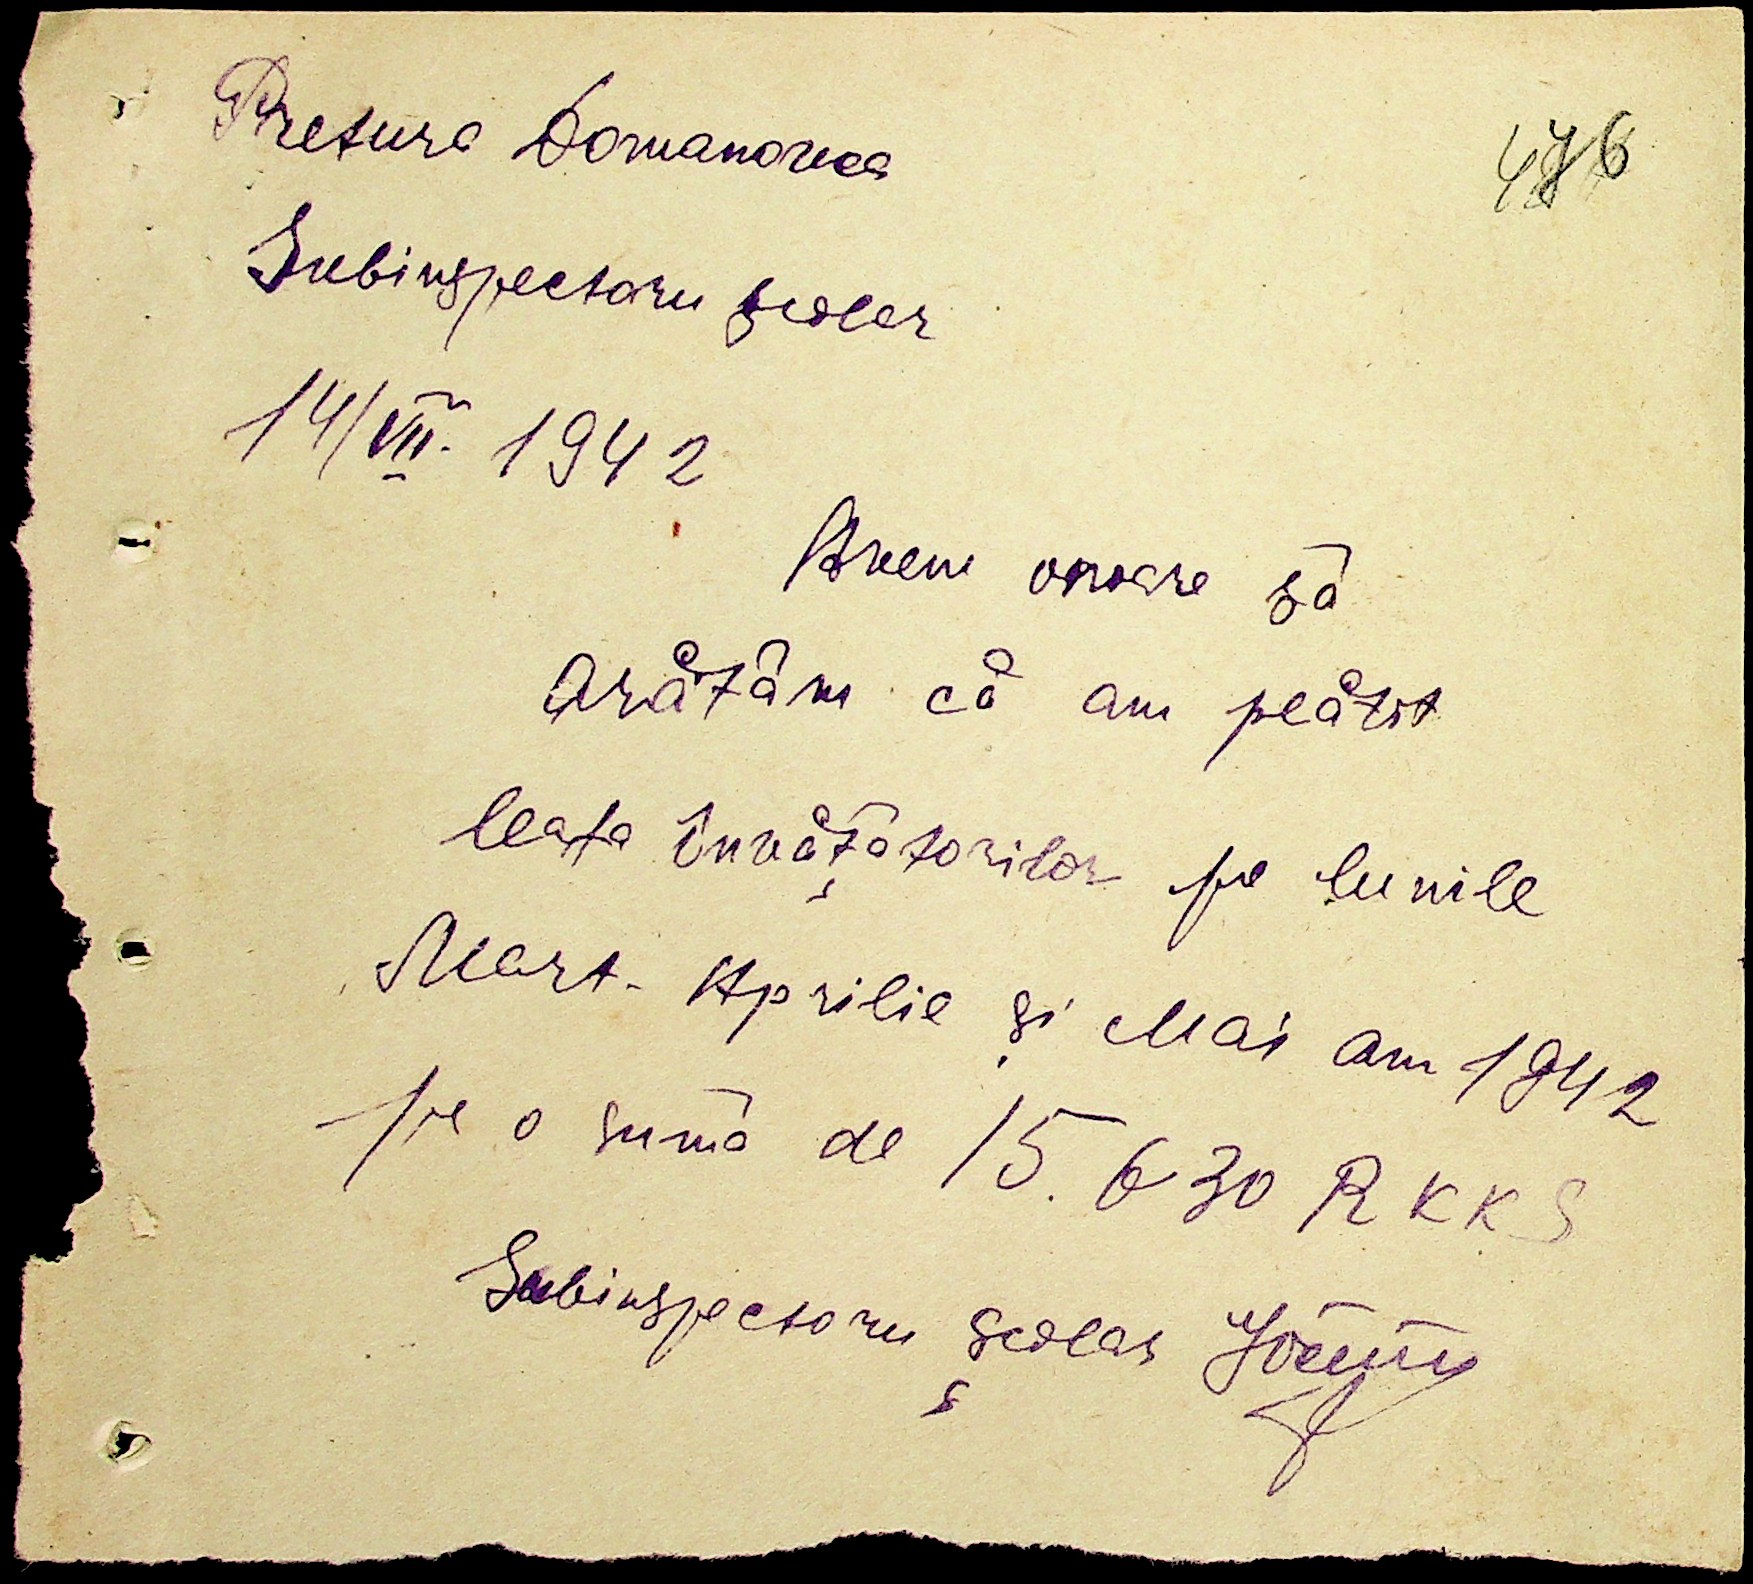 Pretura Domanovca
476
Subinspectoru școlar
14/VII. 1942
Avem onoare să
arătăm că am plătit
leafa învățătorilor pe lunile
Mart. Aprilie și Mai am 1942
pe o sumă de 15.630 RKKS
Subinspectoru școlar